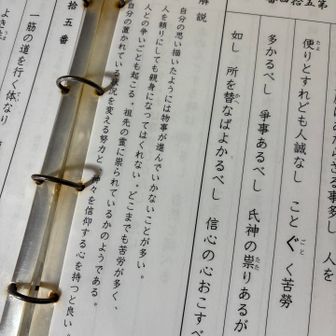 たはざる事多し 人を
便りとすれども人誠なし ことぐく苦勞
多かるべし 爭事あるべし 氏神の祟りあるが
如し 所を替なばよかるべし 信心の心おこすべ
解説
自分の思い描いたようには物事が進んでいかないことが多い。
人を頼りにしても親身になってはくれない。どこまでも苦労が多く、
人との争いごとも起こる。祖先の霊に祟られているかのようである。
自分の置かれている状況を変える努力と、神々を信仰する心を持つと良い
拾五番
一筋の道を行く体なり